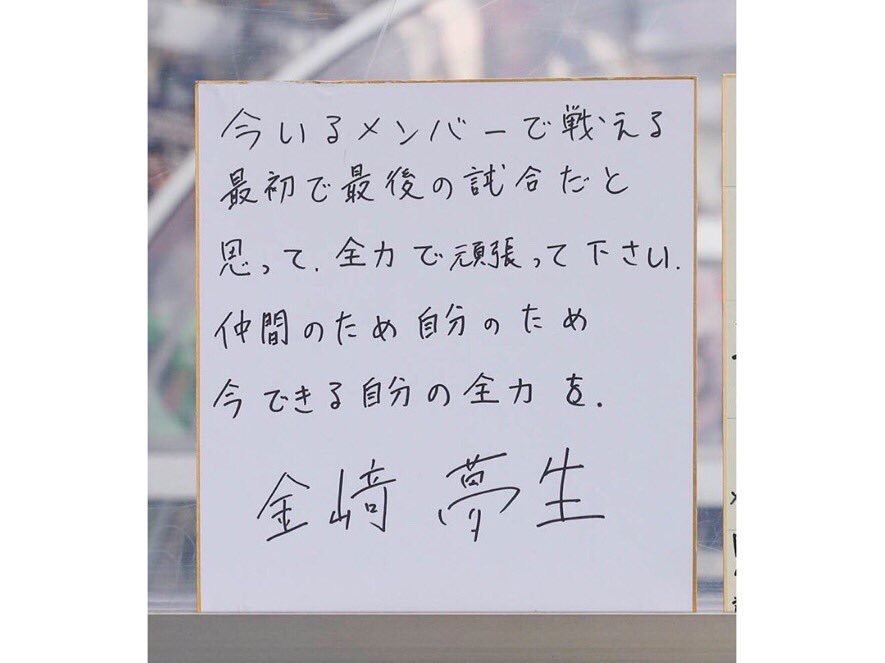 今いるメンバーで戦える
最初で最後の試合だと
思って.全力で頑張って下さい.
仲間のため自分のため
今できる自分の全力を.
金﨑 夢生